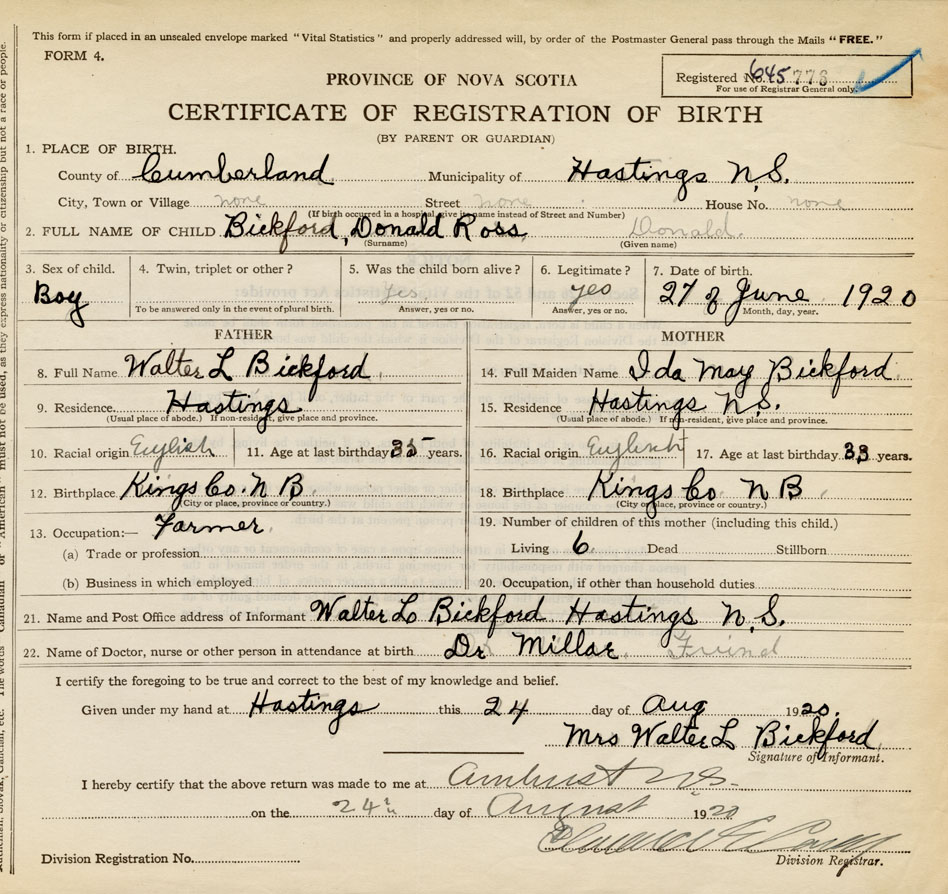 This form if placed in an unsealed envelope marked "Vital Statistics" and properly addressed will, by order of the Postmaster General pass through the Mails "FREE."
FORM 4.
PROVINCE OF NOVA SCOTIA
Registered No. 645776
For use of Registrar General only.
CERTIFICATE OF REGISTRATION OF BIRTH
(BY PARENT OR GUARDIAN)
1. PLACE OF BIRTH.
County of Cumberland Municipality of Hastings N.S.
City, Town or Village none Street none House No. none
(If birth occurred in a hospital, give its name instead of Street and Number)
2. FULL NAME OF CHILD Bickford, Donald Ross, Donald.
(Surname) (Given name)
3. Sex of child. 4. Twin, triplet or other? 5. Was the child born alive? 6. Legitimate? 7. Date of birth.
Boy yes yes 27 of June 1920
To be answered only in the event of plural birth. Answer, yes or no. Answer, yes or no. Month, day, year.
FATHER MOTHER
8. Full Name Walter L Bickford 14. Full Maiden Name Ida May Bickford
9. Residence Hastings 15. Residence Hastings N.S.
(Usual place of abode.) If non-resident, give place and province. (Usual place of abode.) If non-resident, give place and province.
10. Racial origin English 11. Age at last birthday 35 years. 16. Racial origin English 17. Age at last birthday 33 years.
12. Birthplace Kings Co. N B 18. Birthplace Kings Co N B
(City or place, province or country.) (City or place, province or country.)
13. Occupation:— Farmer. 19. Number of children of this mother (including this child.)
(a) Trade or profession Living 6. Dead Stillborn
(b) Business in which employed 20. Occupation, if other than household duties
21. Name and Post Office address of Informant Walter L Bickford Hastings N.S.
22. Name of Doctor, nurse or other person in attendance at birth Dr Millar. Friend
I certify the foregoing to be true and correct to the best of my knowledge and belief.
Given under my hand at Hastings this 24 day of Aug 1920.
Mrs Walter L Bickford
Signature of Informant.
I hereby certify that the above return was made to me at Amherst N.S.
on the 24th day of August 1920
Division Registrar.
Division Registration No.